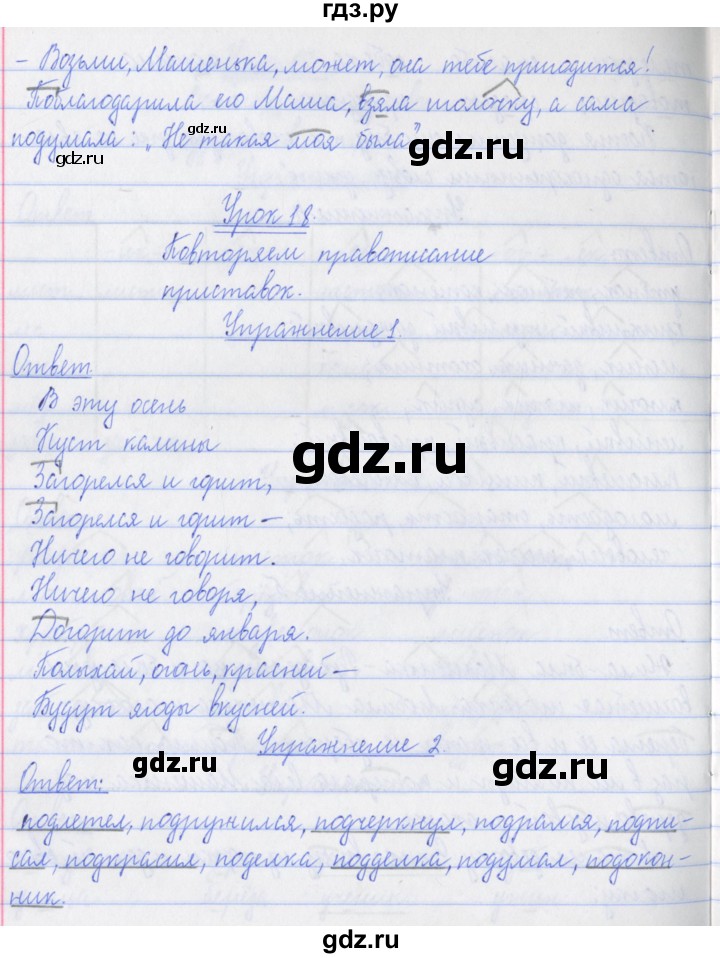 гдз.ру
- Возьми, Машенька, может, она тебе пригодится!
Поблагодарила его Маша, взяла иголочку, а сама
подумала: „Не такая моя была"
gdz.ru
gdz.ru
gdz.ru
Урок 18.
Повторяем правописание
приставок.
Упражнение 1.
Ответ.
В эту осень
Куст калины
gdz.ru
Загорелся и горит,
Загорелся и горит —
Ничего не говорит.
Ничего не говоря,
Догорит до января.
Полыхай, огонь, красней —
Будут ягоды вкусней.
Упражнение 2.
gdz.ru
gdz.ru
Ответ:
подлетел, подружился, подчеркнул, подрался, подпи-
сал, подкрасил, поделка, подделка, подумал, подокон-
ник.
gdz.ru